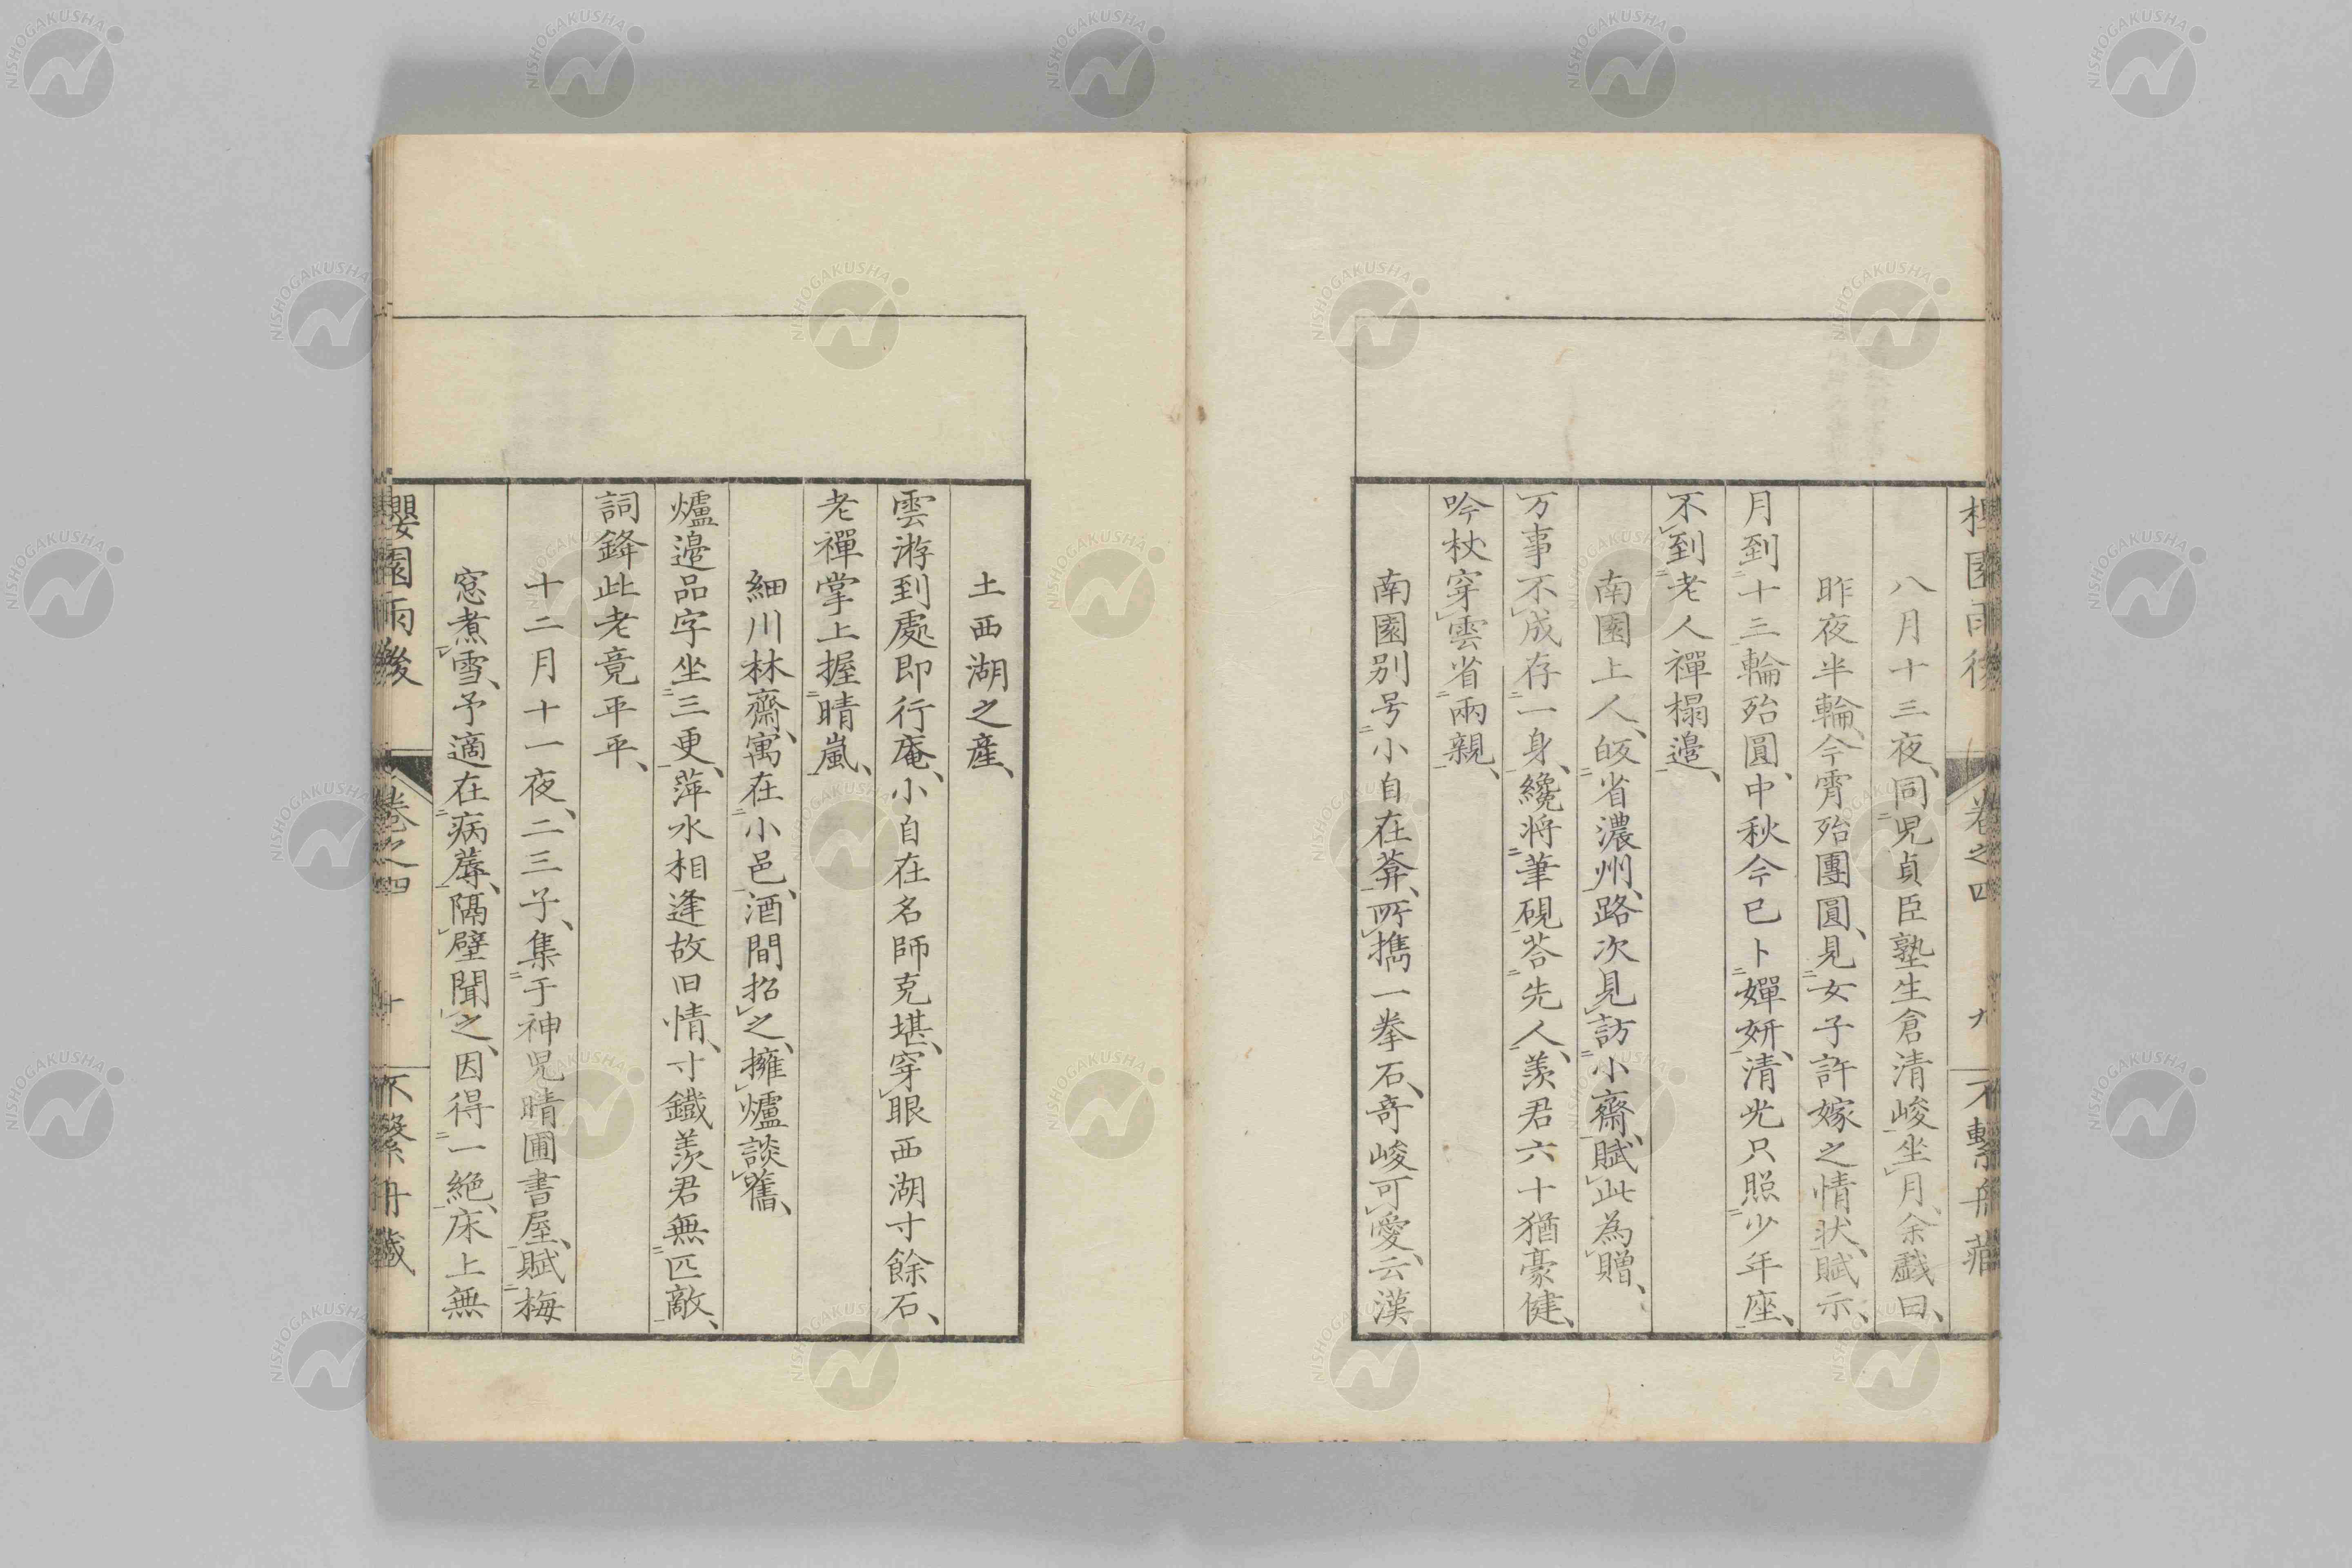 櫻園雨後 卷之四 九 不繫舟藏
八月十三夜、同児貞臣塾生倉清峻坐月、余戯曰、
昨夜半輪、今宵殆團圓、見女子許嫁之情状、賦示、
月到十三輪殆圓、中秋今已卜嬋妍、清光只照少年座、
不到老人禪榻邉、
南園上人、皈省濃州、路次見訪小齋、賦此為贈、
万事不成存一身、纔将筆硯荅先人、羨君六十猶豪健、
吟杖穿雲省兩親、
南園別号小自在葊、所携一拳石、奇峻可愛、云漢
土西湖之産、
雲游到處即行庵、小自在名師克堪、穿眼西湖寸餘石、
老禪掌上握晴嵐、
細川林齋、寓在小邑、酒間招之、擁爐談舊、
爐邉品字坐三更、萍水相逢故旧情、寸鐵羨君無匹敵、
詞鋒此老竟平平、
十二月十一夜、二三子、集于神児晴圃書屋、賦梅
窓煮雪、予適在病蓐、隔壁聞之、因得一絶、床上無
櫻園雨後 卷之四 十 不繫舟藏
NISHOGAKUSHA